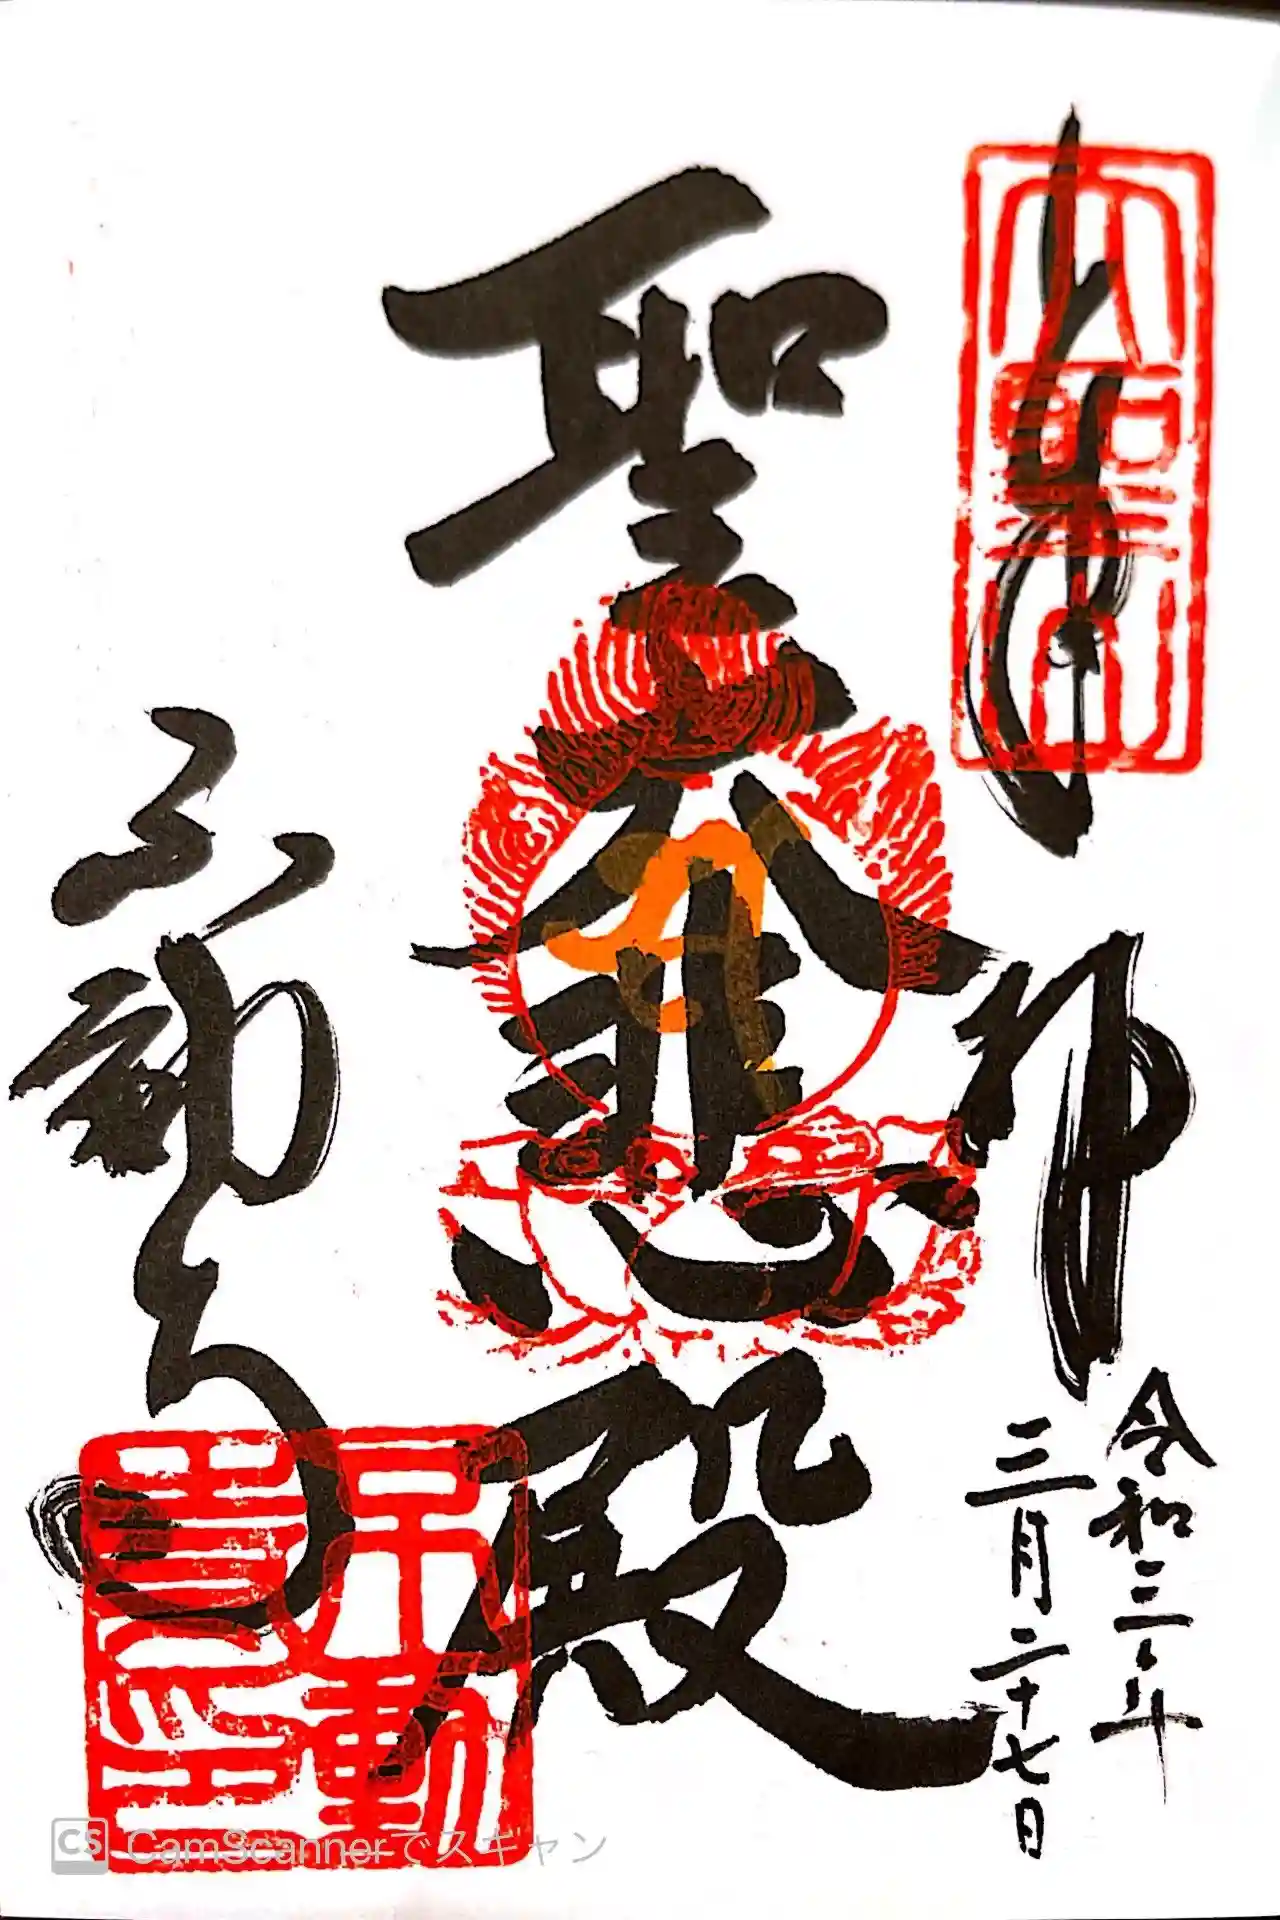 奉拝
令和三年
三月二十七日
聖大悲殿
不動
不動
CS CamScannerでスキャン